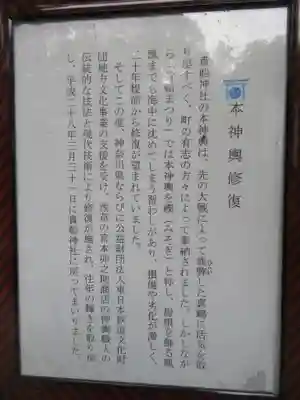 本神輿修復
貴船神社の本神輿は、先の大戦によって疲弊した真鶴に活気を取
り戻すべく、町の有志の方々によって奉納されました。しかしなが
ら「貴船まつり」では本神輿を禊(みそぎ)と称し、屋根を飾る鳳
凰までも海中に沈めてしまう習わしがあり、損傷や劣化が著しく、
二十年程前から修復が望まれていました。
そしてこの度、神奈川県ならびに公益財団法人東日本鉄道文化財
団地方文化事業の支援を受け、浅草の宮本卯之助商店の神輿職人の
伝統的な技法と現代技術により修復が施され、往年の輝きを取り戻
し、平成二十八年三月三十一日に貴船神社に戻ってまいりました。